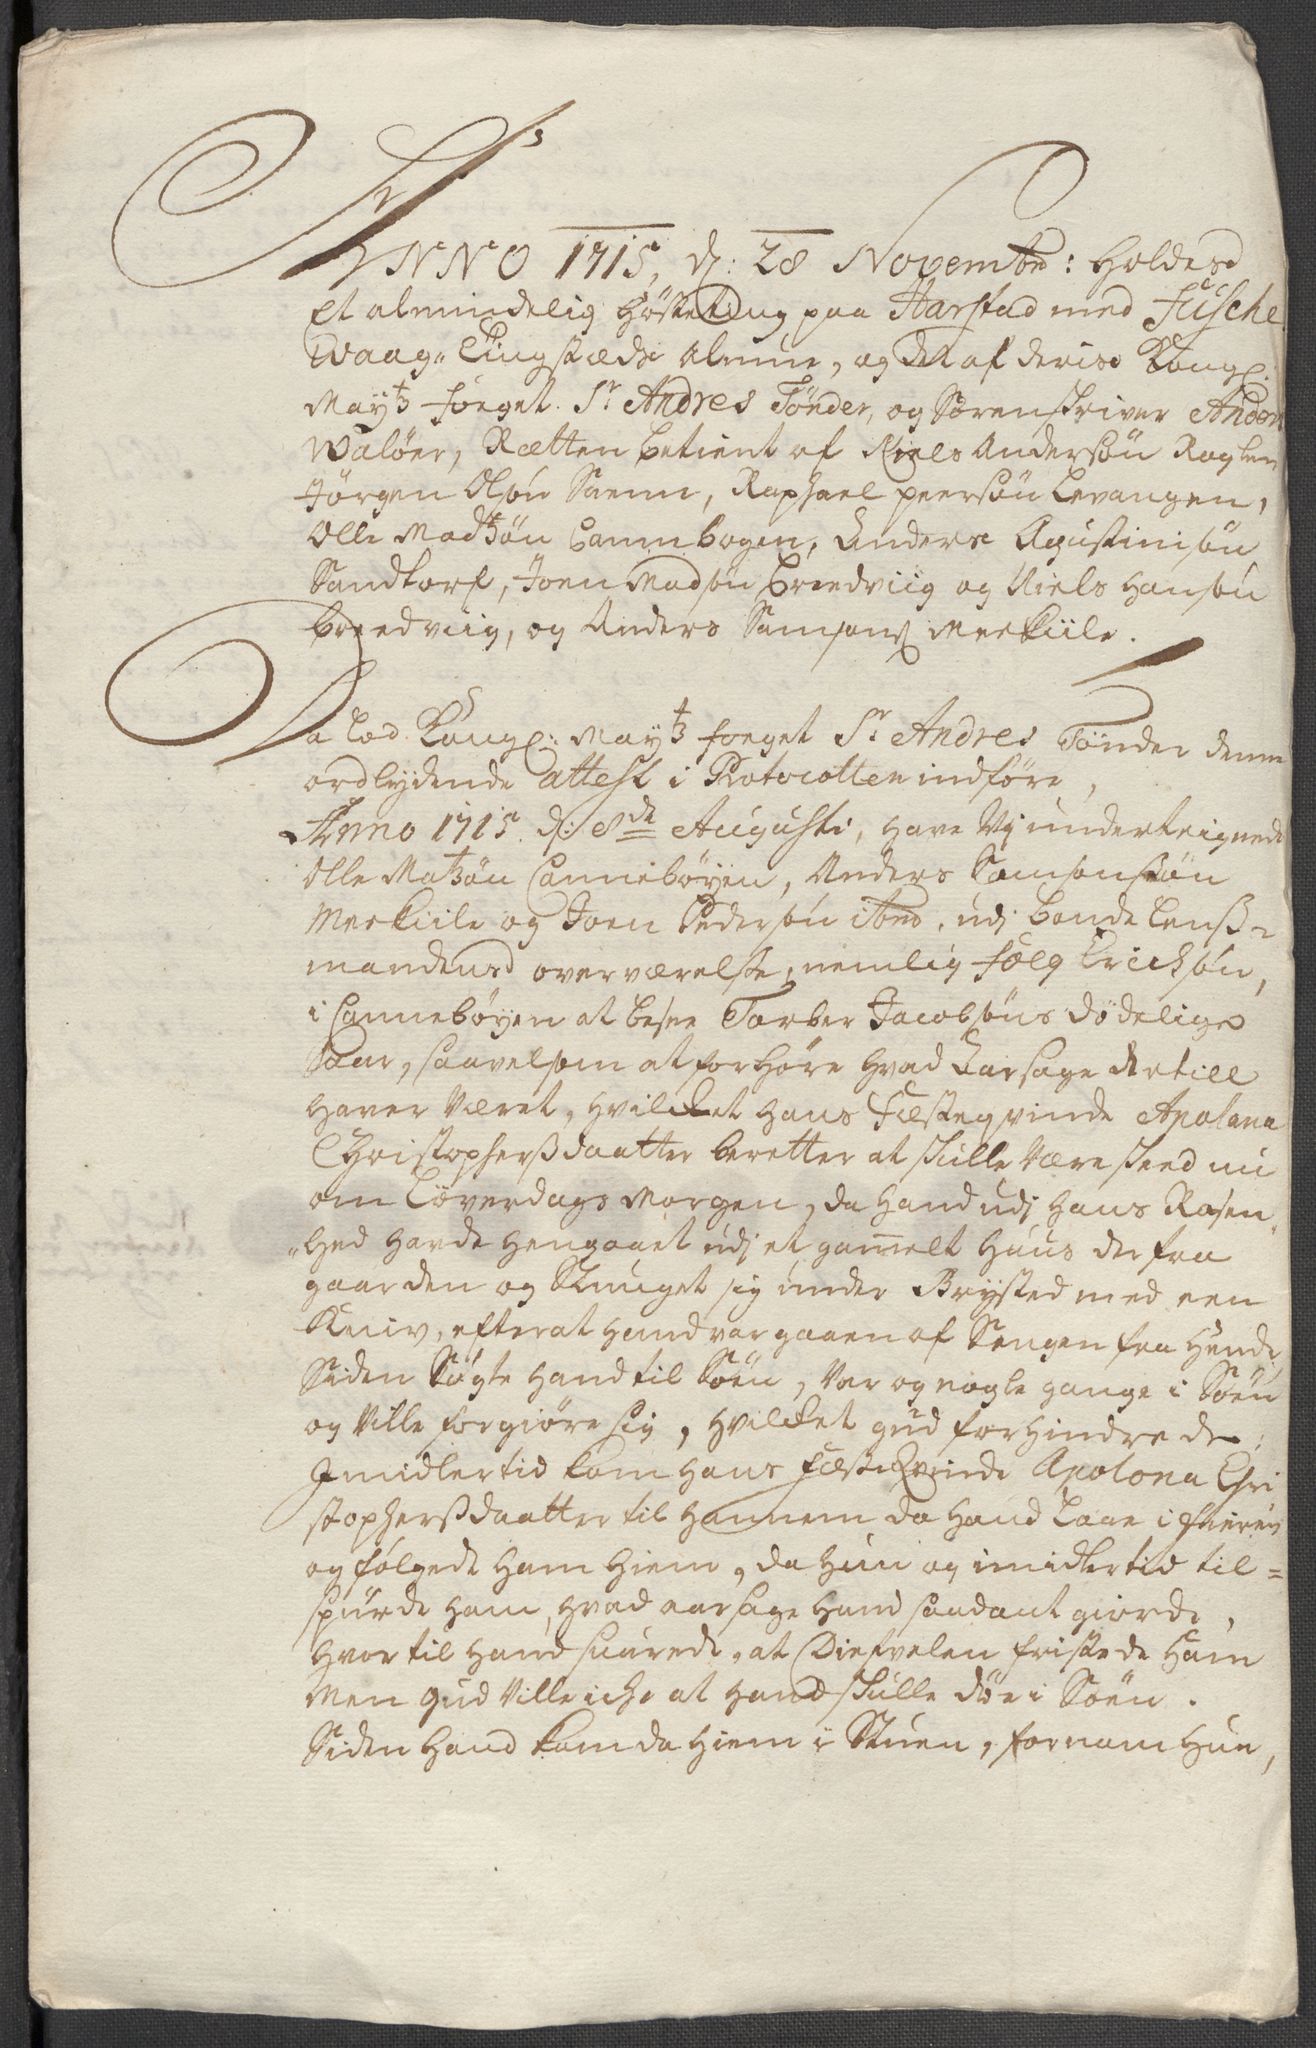 ANNO 1715, d: 28 Novembr: Holdes
et almindelig Høsteting paa Harstad med Fusche
Waag" Tingstædz Almue, og det af deris Kongl:
Maytz Foeget Sr Andres Tönder, og Sorenskriver Anders
Walöer, Rætten betient af Niels Andersøn Raglen
Jørgen Olsøn Saemi, Raphael peersøn Levangen,
Olle Madtzøn Cannebogen, Anders Agustinisøn
Sandtorf, Joen Madsøn Breedviig og Niels Hansøn
breedviig, og Anders Samsons: Merkiile.
Da lod Kongl: Maytz foeget Sr Andres Tönder denne
ordlydende attest i Protocollen indføre,
Anno 1715. d: 8de Augusti, have Vj underteignede
Olle Matzøn Cannebøyen, Anders Samsonsøn
Merkiile og Joen Pedersøn ibid, udj bonde lenß-
mandens overværelse, nemlig Fælq Erichsøn,
i Cannebøyen at besee Torber Jacobsøns dødelige
Saar, saavelsom at forhøre hvad Aarsage dertill
haver Været, hvilcket hans Fæsteqvinde Apolona
Christopherßdaatter beretter at skulle Være skeed nu
om Löverdags Morgen, da hand udj hans Rasen"
"hed havde hengaaet udj et gammelt Huus der fra
gaarden og Stunget sig under Brysted med een
Kniv, efter at hand var gaaen af Sengen fra Hende,
Siden Søgte hand til Søen, Var og nogle gange i Søen
og Ville forgiøre sig, hvilcket gud forhindrede;
Imidlertid kom hans fæsteqvinde Apolona Chri
stopherßdaatter til hannem da hand laae i fiæren
og følgede ham hiem, da hun og imidlertid til=
spurde ham, hvad aarsage hand saadant giorde,
hvortil hand suarede, at Dieffvelen fristede ham
Men Gud Ville iche at hand skulle døe i Søen.
Siden hand kom da hiem i Stuen, fornam hun,